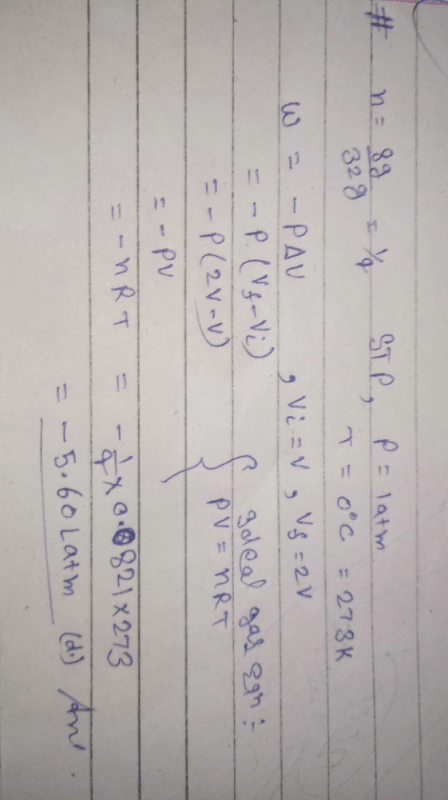 # n = 8g/32g = 1/4 STP, P = 1atm
T = 0°C = 273K
W = -PΔV , Vi = V , Vf = 2V
= -P (Vf - Vi)
= -P (2V - V) { Ideal gas eqn :
= -PV PV = nRT
= -nRT = - 1/4 × 0.0821 × 273
= -5.60 L atm (d.) Ans.